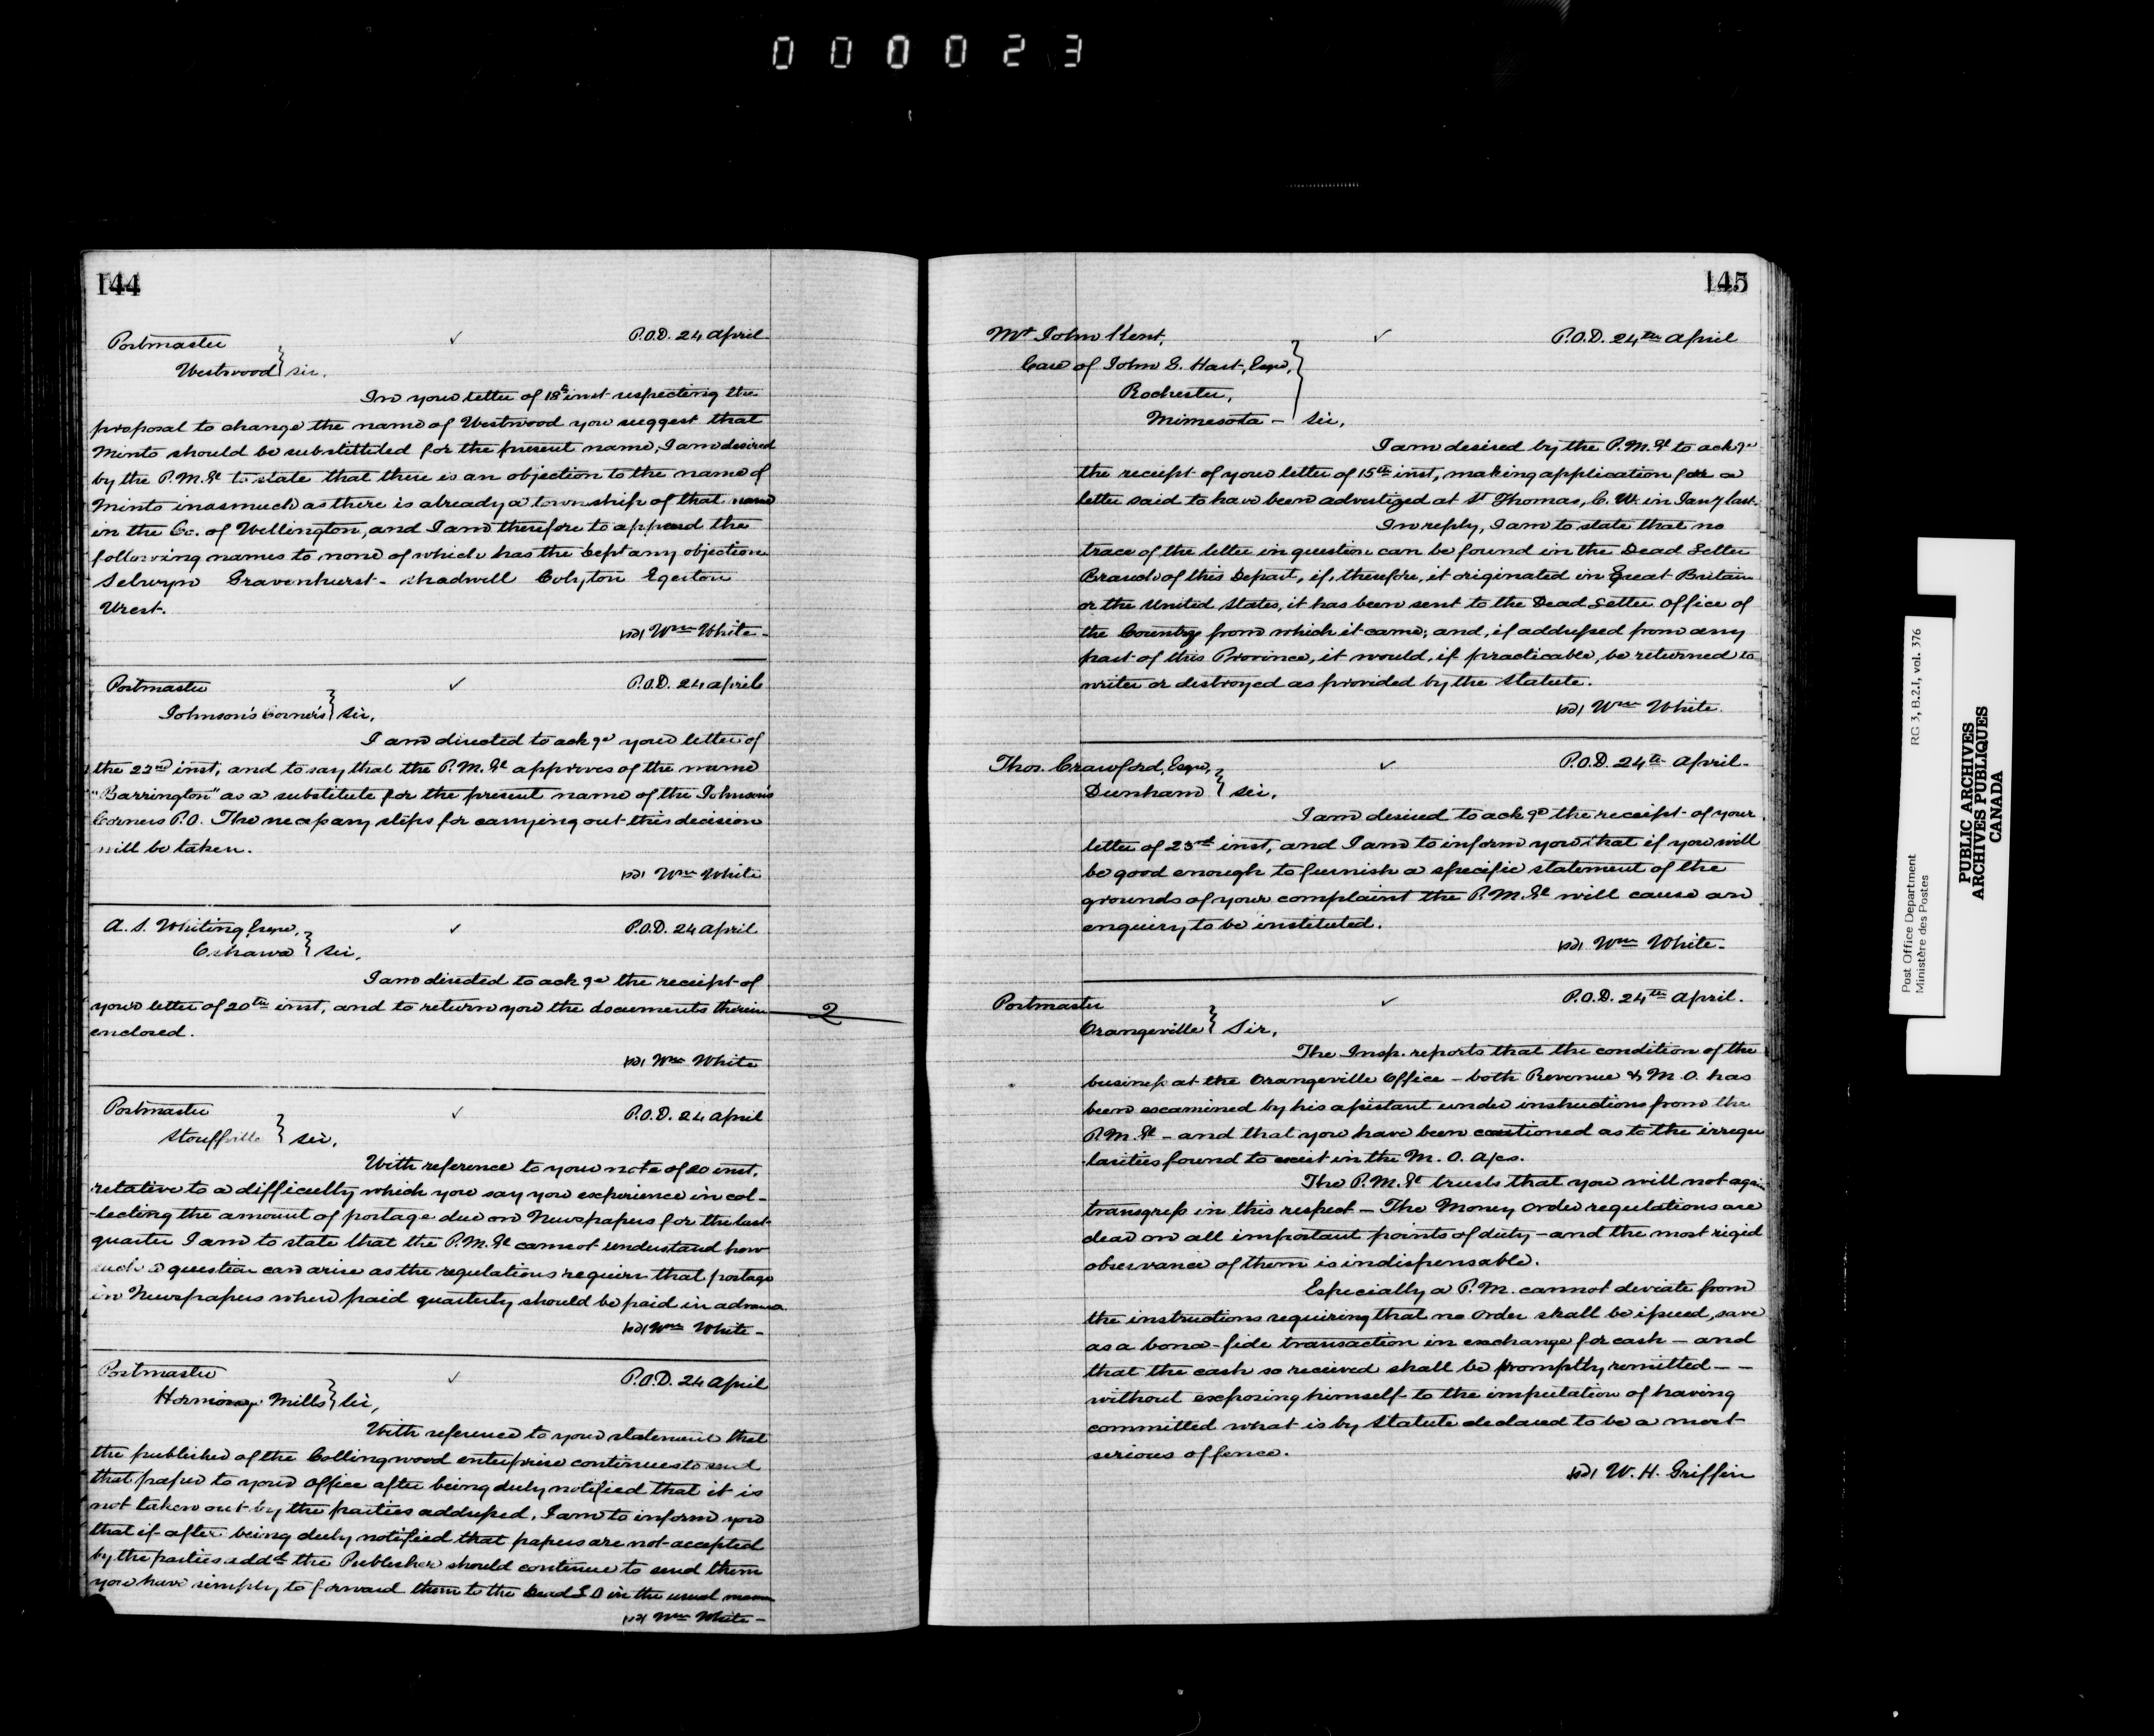 000023
144
Postmaster ✓ P.O.D. 24 April
Westwood } Sir,
In your letter of 18th inst respecting the
proposal to change the name of Westwood you suggest that
Minto should be substituted for the present name, I am desired
by the P.M.Gl to state that there is an objection to the name of
Minto inasmuch as there is already a township of that name
in the Co. of Wellington, and I am therefore to append the
following names to none of which has the Dept any objection
Selwyn Gravenhurst - Shadwell Colyton Egerton
Wrest.
sd/ Wm White -
Postmaster ✓ P.O.D. 24 April
Johnson's Corners } Sir,
I am directed to ackge your letter of
the 22nd inst, and to say that the P.M.Gl approves of the name
"Barrington" as a substitute for the present name of the Johnson's
Corners P.O. The necessary steps for carrying out this decision
will be taken.
sd/ Wm White
A. S. Whiting, Esqre, ✓ P.O.D. 24 April
Oshawa } Sir,
I am directed to ackge the receipt of
your letter of 20th inst, and to return you the documents therein
enclosed.
2
sd/ Wm White
Postmaster ✓ P.O.D. 24 April
Stouffville } Sir,
With reference to your note of 20 inst,
relative to a difficulty which you say you experience in col-
-lecting the amount of postage due on Newspapers for the last
quarter I am to state that the P.M.Gl cannot understand how
such a question can arise as the regulations require that postage
on Newspapers when paid quarterly should be paid in advance
sd/ Wm White -
Postmaster ✓ P.O.D. 24 April
Hornings Mills } Sir,
With reference to your statement that
the publisher of the Collingwood enterprise continues to send
that paper to your office after being duly notified that it is
not taken out by the parties addressed, I am to inform you
that if after being duly notified that papers are not accepted
by the parties addd the Publisher should continue to send them
you have simply to forward them to the Dead L O in the usual manner
sd/ Wm White -
145
Mr John Kent, ✓ P.O.D. 24th April
Care of John S. Hart, Esqre,
Rochester,
Mimesota - } Sir,
I am desired by the P.M.Gl to ackge
the receipt of your letter of 15th inst, making application for a
letter said to have been advertized at St Thomas, C. W. in Jany last.
In reply, I am to state that no
trace of the letter in question can be found in the Dead Letter
Branch of this Depart, if, therefore, it originated in Great Britain
or the United States, it has been sent to the Dead Letter Office of
the Country from which it came; and, if addressed from any
part of this Province, it would, if practicable, be returned to
writer or destroyed as provided by the Statute.
sd/ Wm White.
Thos. Crawford, Esqre, ✓ P.O.D. 24th April -
Dunham } Sir,
I am desired to ackge the receipt of your
letter of 23rd inst, and I am to inform you that if you will
be good enough to furnish a specific statement of the
grounds of your complaint the P.M.Gl will cause an
enquiry to be instituted.
sd/ Wm White -
Postmaster ✓ P.O.D. 24th April.
Orangeville } Sir,
The Insp. reports that the condition of the
business at the Orangeville Office - both Revenue & M.O. has
been examined by his assistant under instructions from the
P.M.Gl - and that you have been cautioned as to the irregu
-larities found to exist in the M. O. A/cs.
The P.M.Gl trusts that you will not again
transgress in this respect - The Money Order regulations are
clear on all important points of duty - and the most rigid
observance of them is indispensable.
Especially a P.M. cannot deviate from
the instructions requiring that no Order shall be issued, save
as a bona-fide transaction in exchange for cash - and
that the cash so received shall be promptly remitted - -
without exposing himself to the imputation of having
committed what is by Statute declared to be a most
serious offence.
sd/ W. H. Griffin
Post Office Department RG 3, B.2.I, vol. 376
Ministère des Postes
PUBLIC ARCHIVES
ARCHIVES PUBLIQUES
CANADA